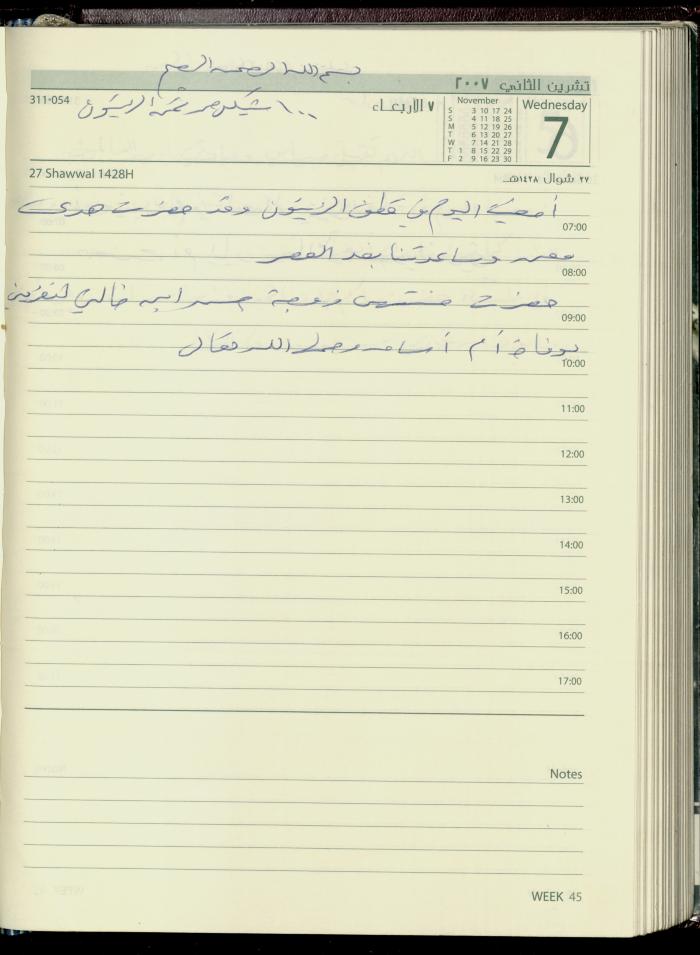 بسم الله الرحمن الرحيم
تشرين الثاني ٢٠٠٧
311-054
١٠٠ شيكل من ثمن الزيتون
٧ الأربعـاء
November
S 3 10 17 24
S 4 11 18 25
M 5 12 19 26
T 6 13 20 27
W 7 14 21 28
T 1 8 15 22 29
F 2 9 16 23 30
Wednesday
7
27 Shawwal 1428H
٢٧ شوال ١٤٢٨هـ
أمضيت اليوم في قطف الزيتون وقد حضرت هدى
07:00
وساعدتنا بعد العصر
08:00
حضرت زوجة ابن خالي لتعزيتي
09:00
بوفاة أم أسامة رحمها الله تعالى
10:00
11:00
12:00
13:00
14:00
15:00
16:00
17:00
Notes
WEEK 45